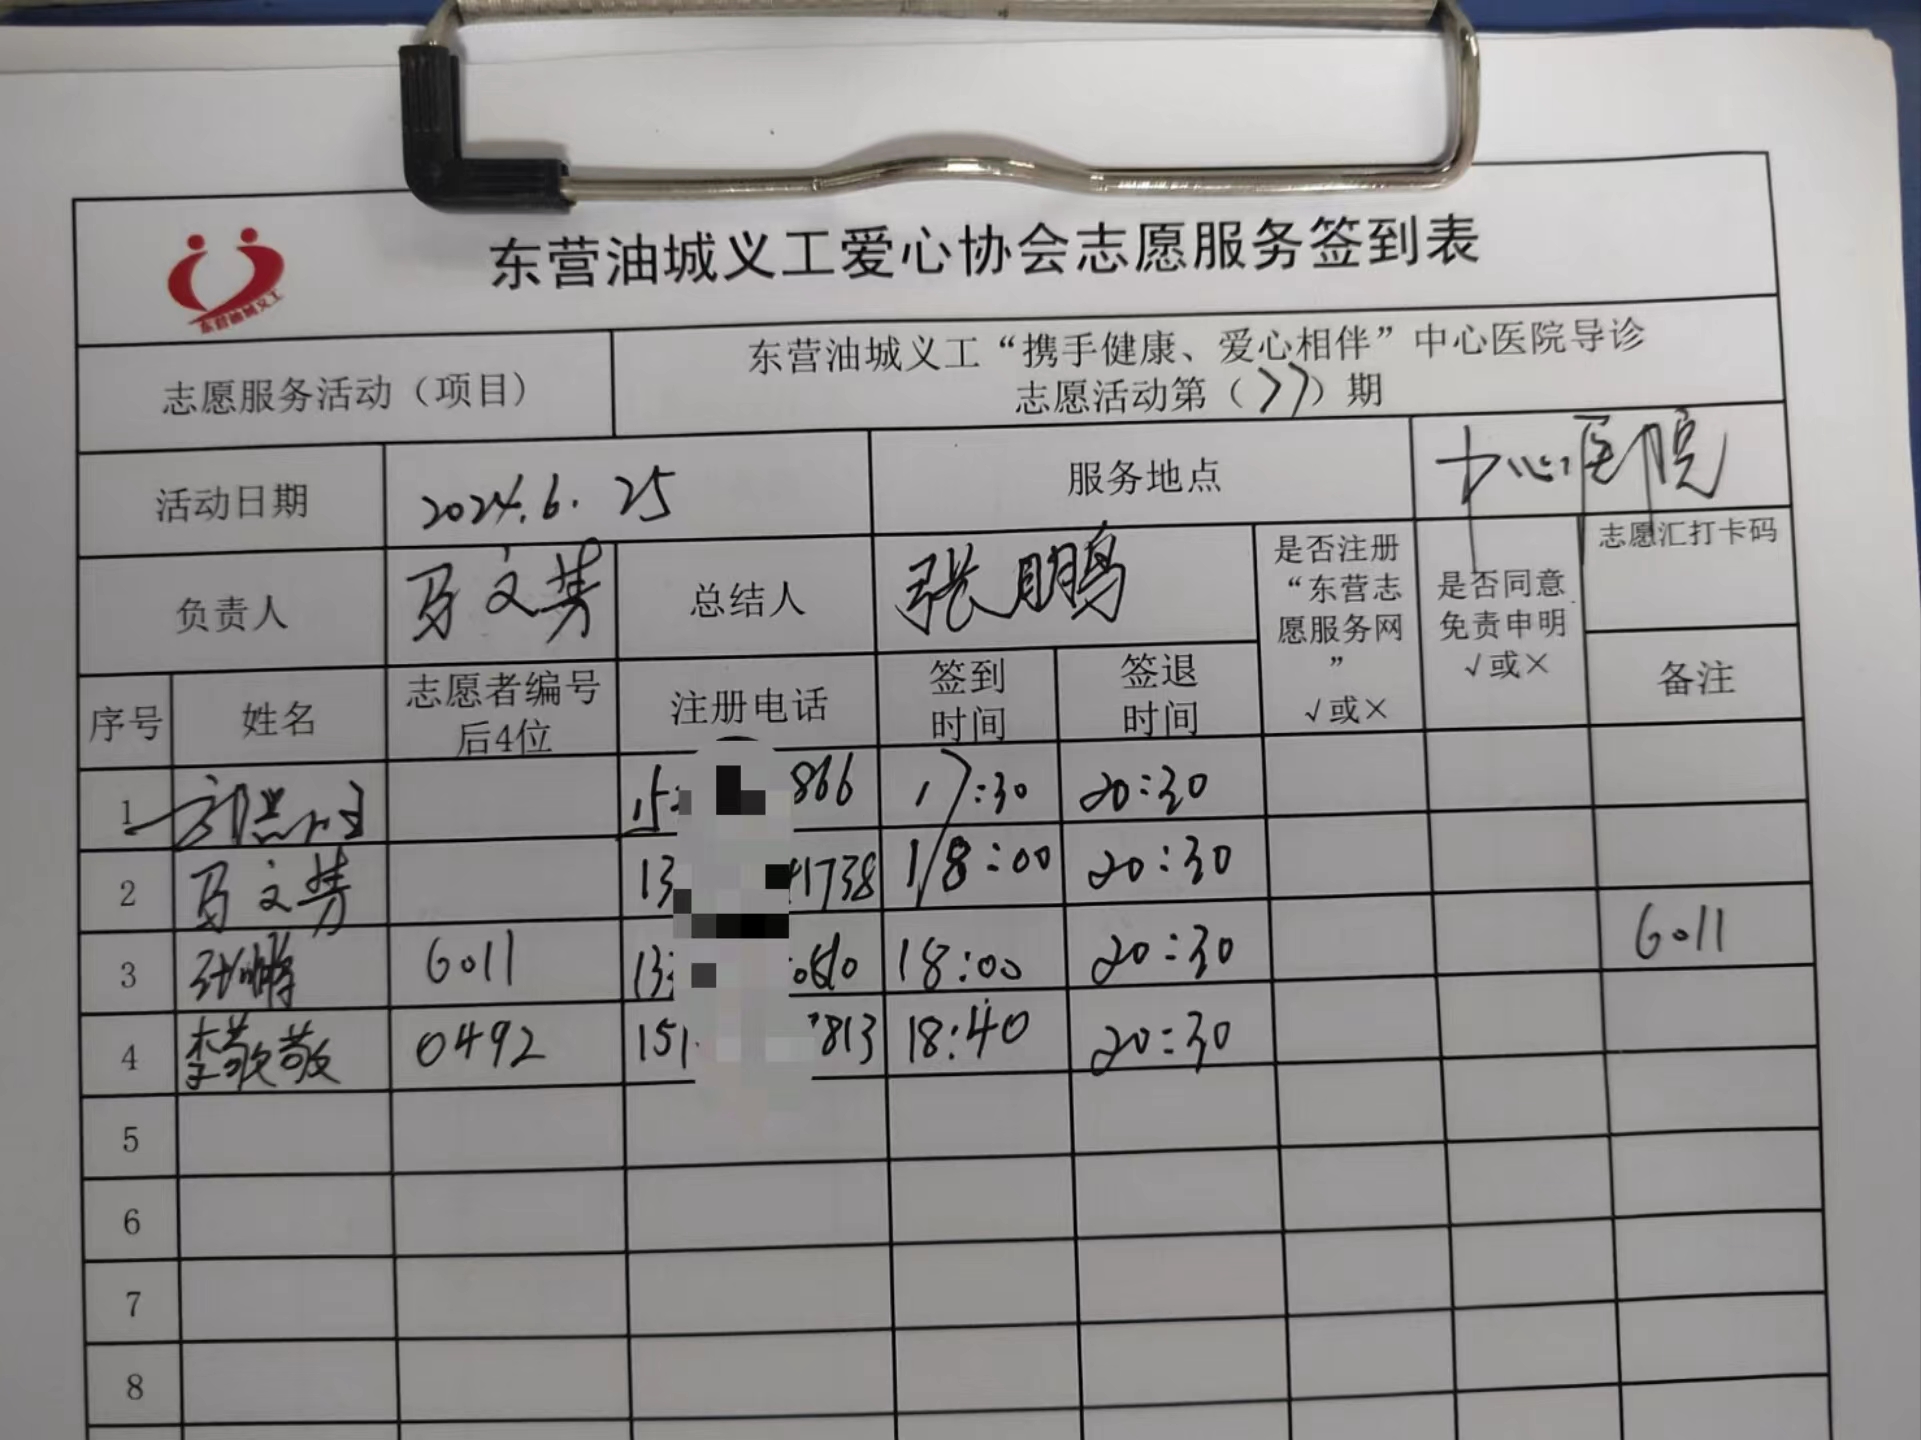 东营油城义工
东营油城义工爱心协会志愿服务签到表
志愿服务活动（项目）
东营油城义工“携手健康、爱心相伴”中心医院导诊
志愿活动第（77）期
活动日期
2024.6.25
服务地点
中心医院
负责人
马文芳
总结人
张鹏
是否注册
“东营志
愿服务网
”
√或×
是否同意
免责申明
√或×
志愿汇打卡码
备注
序号
姓名
志愿者编号
后4位
注册电话
签到
时间
签退
时间
1
15
866
17:30
20:30
2
马文芳
13
1738
18:00
20:30
3
张鹏
6011
13
18:00
20:30
6011
4
李敬敬
0492
151
813
18:40
20:30
5
6
7
8